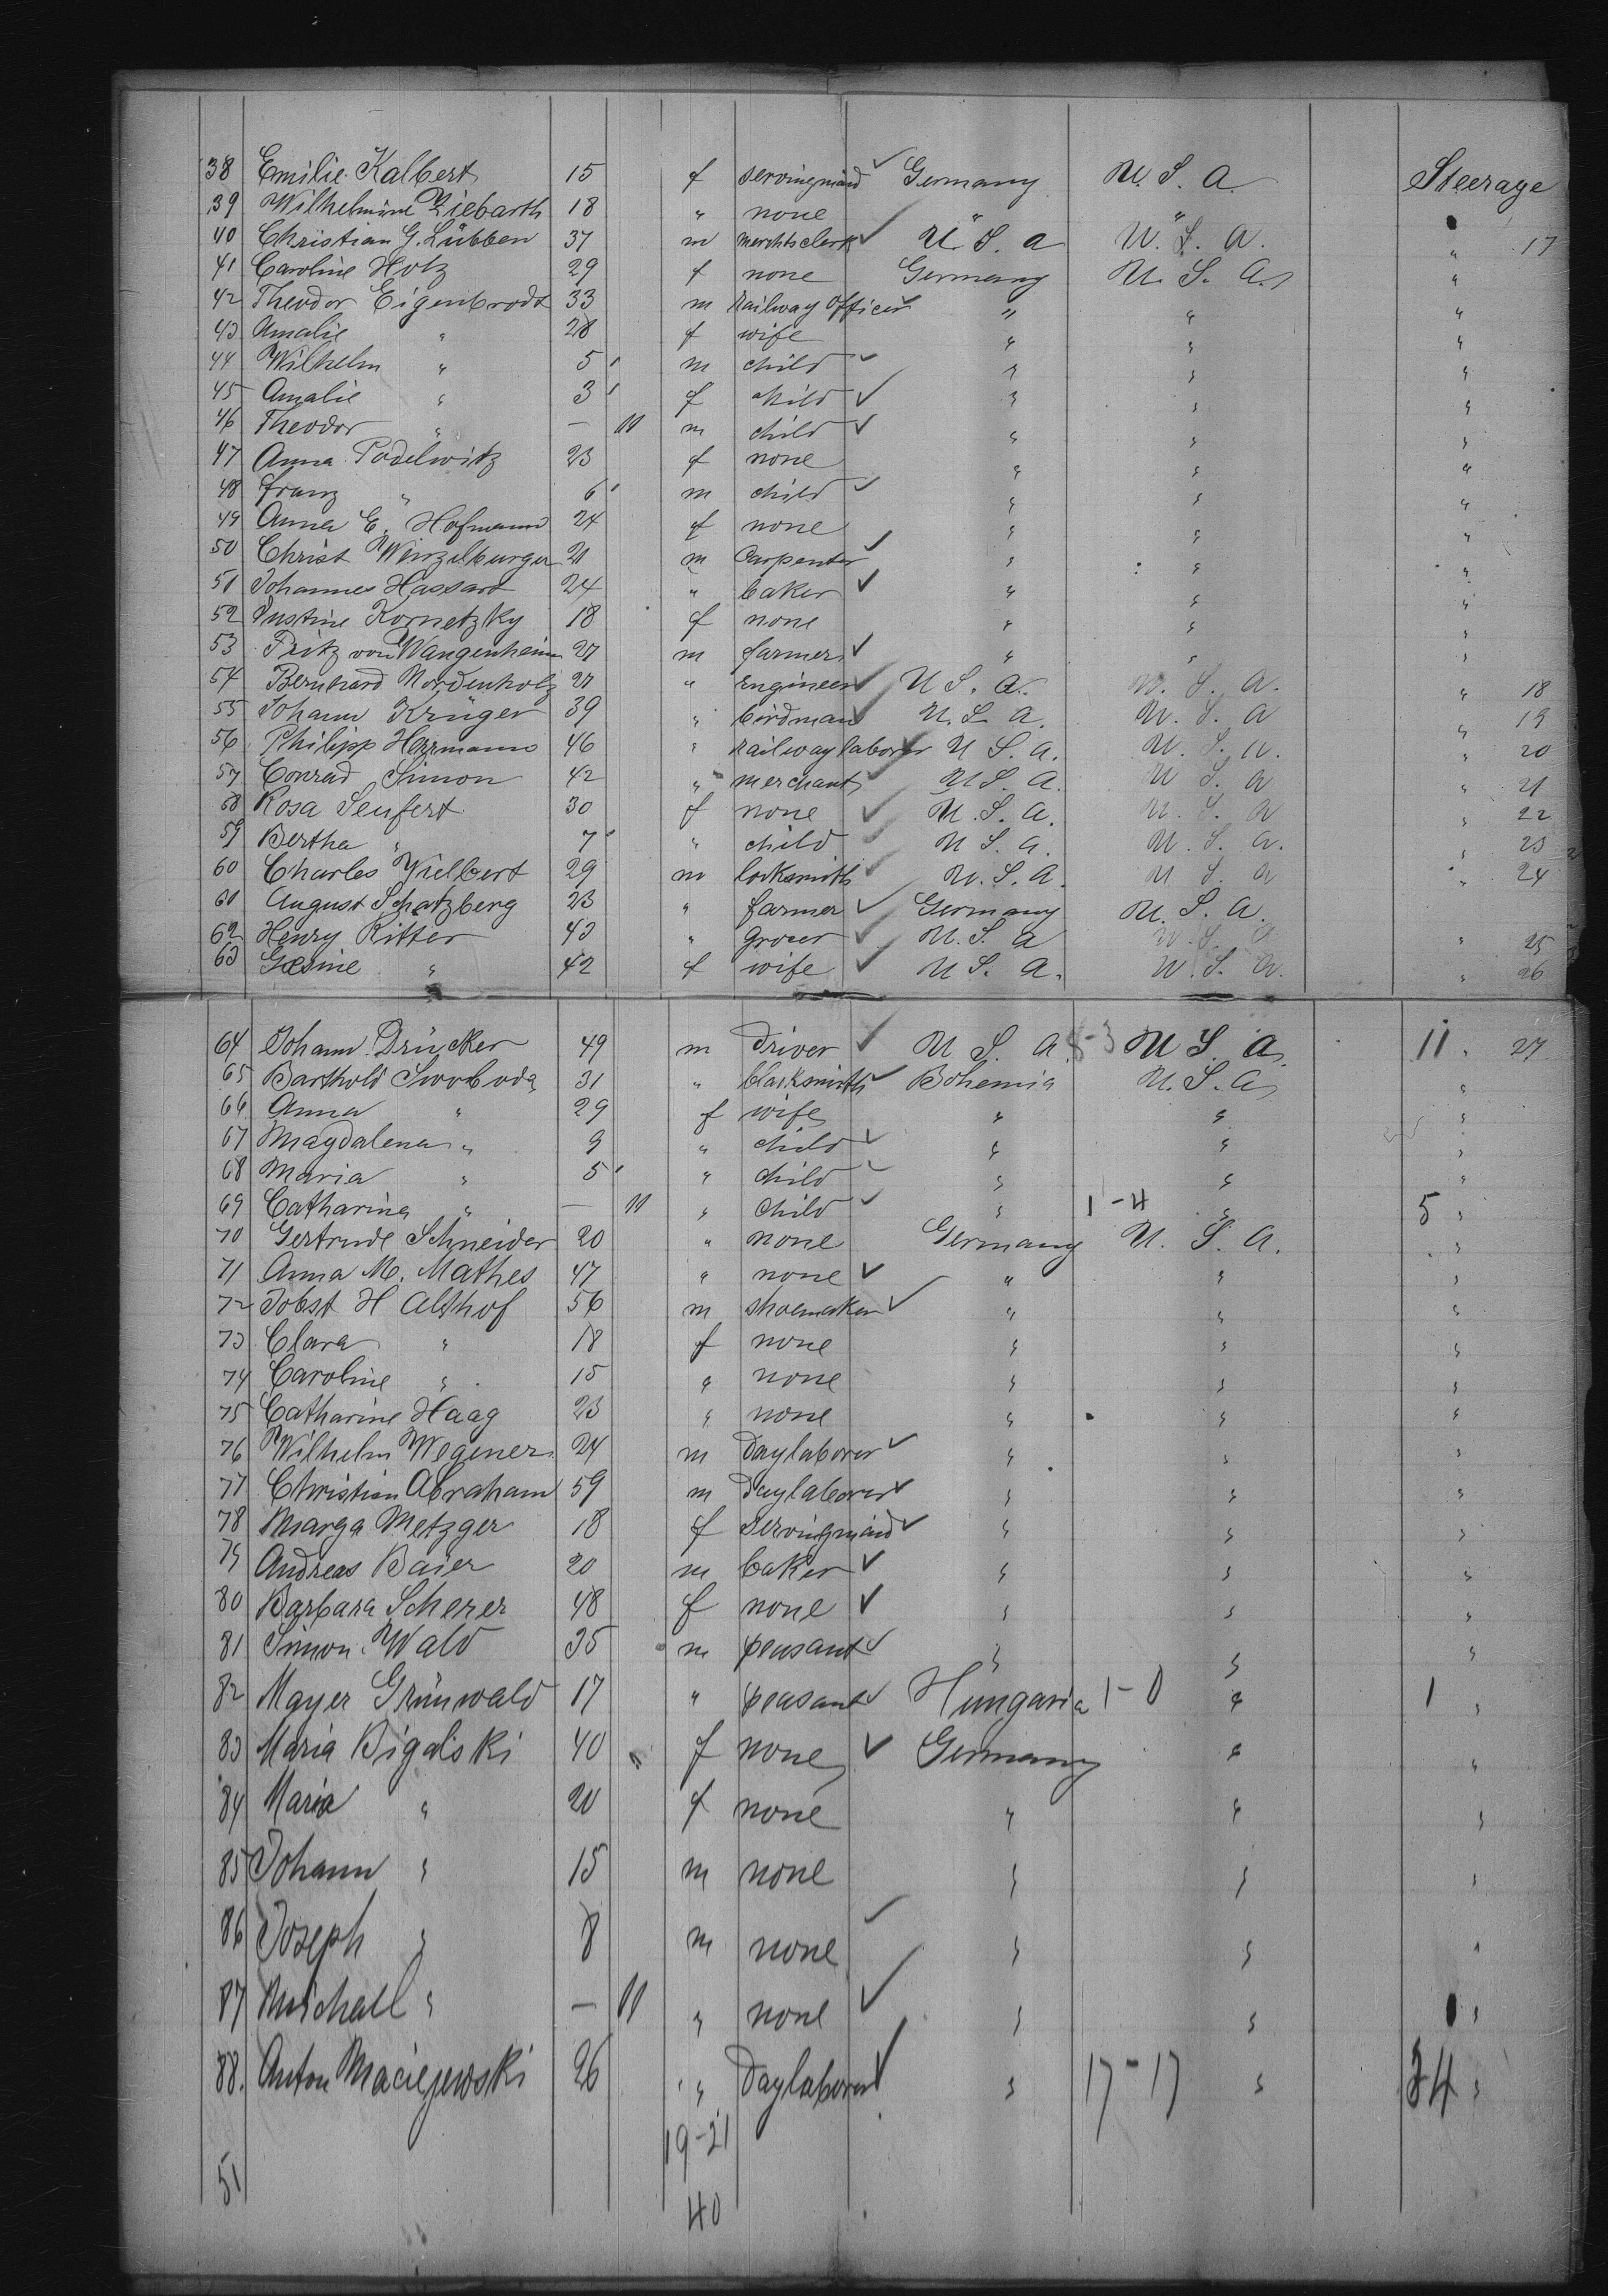 38 Emilie Kalbert 15 f servingmaid Germany U. S. A. Steerage
39 Wilhelmine Ziebarth 18 " none " "
40 Christian G. Lübben 37 m merchtsclerk U. S. A U. S. A. " 17
41 Caroline Hotz 29 f none Germany U. S. A. "
42 Theodor Eigenbrodt 33 m railway officer " " "
43 Amalie " 28 f wife " " "
44 Wilhelm " 5 m child " " "
45 Amalie " 3 f child " " "
46 Theodor " — 11 m child " " "
47 Anna Podelwitz 23 f none " " "
48 Franz " 6 m child " " "
49 Anna E. Hofmann 24 f none " " "
50 Christ Winzelburger 21 m Carpenter " " "
51 Johannes Hassard 24 " baker " " "
52 Justine Kornetzky 18 f none " " "
53 Fritz von Wangenheim 27 m farmer " " "
54 Bernhard Nordenholz 27 " Engineer U S. A. U. S. A. " 18
55 Johann Krüger 39 " birdman U. S. A. U. S. A " 19
56 Philipp Herrmann 46 " railway laborer U S. A. U. S. A. " 20
57 Conrad Simon 42 " merchant U S. A. U S. A " 21
58 Rosa Seufert 30 f none U. S. A. U. S. A " 22
59 Bertha " 7 " child U S. A. U. S. A. " 23
60 Charles Wielbert 29 m locksmith U. S. A. U S. A " 24
61 August Schatzberg 23 " farmer Germany U. S. A.
62 Henry Ritter 43 " grocer U. S. A U. S. A " 25
63 Gesine " 42 f wife U S. A. U. S. A. " 26
64 Johann Drücker 49 m driver U S. A. 8-3 U S. A. 11 " 27
65 Barthold Swoboda 31 " blacksmith Bohemia U. S. A. "
66 Anna " 29 f wife " " "
67 Magdalena " 9 " child " " "
68 Maria " 5 " child " " "
69 Catharina " — 11 " child " 1-4 " 5 "
70 Gertrude Schneider 20 " none Germany U. S. A. "
71 Anna M. Mathes 47 " none " " "
72 Jobst H Althof 56 m shoemaker " " "
73 Clara " 18 f none " " "
74 Caroline " 15 " none " " "
75 Catharine Haag 23 " none " " "
76 Wilhelm Wegener 24 m Daylaborer " " "
77 Christian Abraham 59 m Daylaborer " " "
78 Marga Metzger 18 f servingmaid " " "
79 Andreas Baier 20 m baker " " "
80 Barbara Scherer 48 f none " " "
81 Simon Wald 35 m peasant " " "
82 Mayer Grünwald 17 " peasant Hungaria 1-0 " 1 "
83 Maria Bigalski 40 " f none Germany " "
84 Maria " 20 f none " " "
85 Johann " 15 m none " " "
86 Joseph " 8 m none " " "
87 Michall " — 11 " none " " "
88. Anton Maciejewski 26 " Daylaborer " 17-17 " 34 "
19-21
51
40